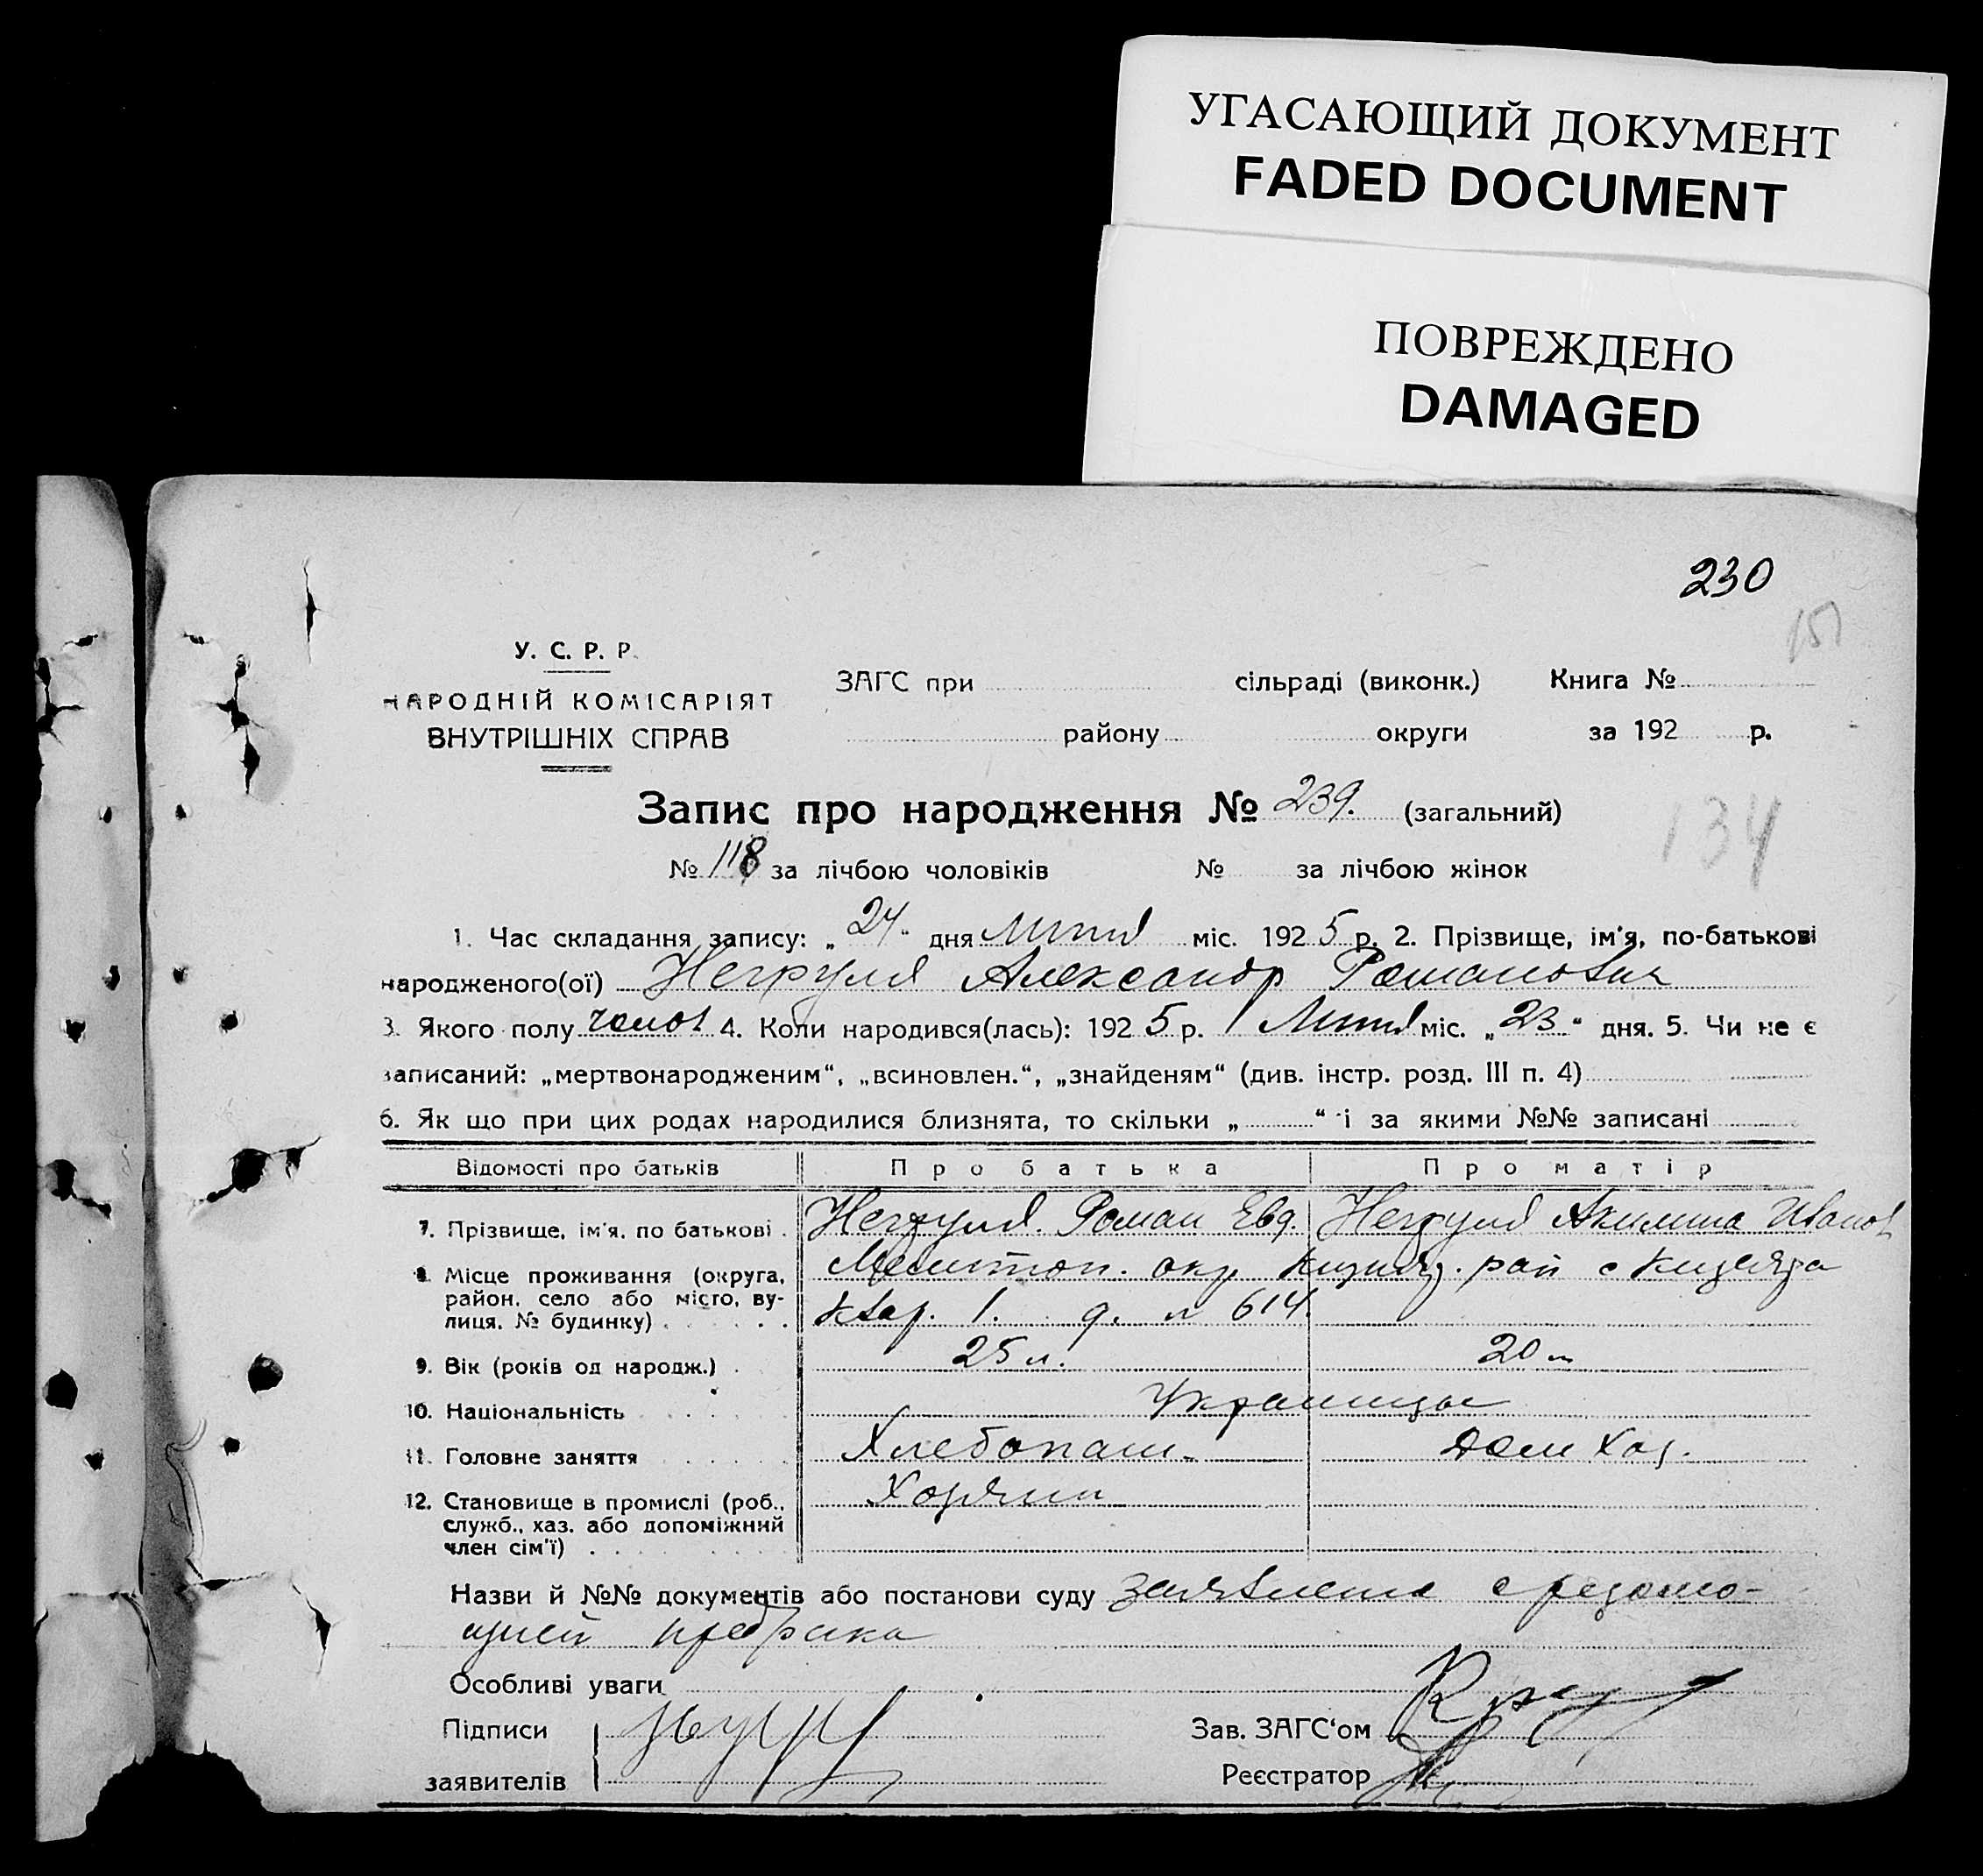 УГАСАЮЩИЙ ДОКУМЕНТ
FADED DOCUMENT
ПОВРЕЖДЕНО
DAMAGED
230
151
У. С. Р. Р.
НАРОДНІЙ КОМІСАРІЯТ
ВНУТРІШНІХ СПРАВ
ЗАГС при сільраді (виконк.) Книга №
району округи за 192 р.
Запис про народження № 239. (загальний)
134
№ 118 за лічбою чоловіків № за лічбою жінок
1. Час складання запису: „24“ дня міс. 1925 р. 2. Прізвище, ім'я, по-батькові
народженого(ої) Негруля Александр Романович
3. Якого полу 4. Коли народився(лась): 1925 р. міс. „23“ дня. 5. Чи не є
записаний: „мертвонародженим“, „всиновлен.“, „знайденям“ (див. інстр. розд. III п. 4)
6. Як що при цих родах народилися близнята, то скільки „ “ і за якими №№ записані
Відомості про батьків Про батька Про матір
7. Прізвище, ім'я, по батькові . Негруля Роман Евд. Негруля Акилина Иванов
8. Місце проживання (округа, район, село або місто, вулиця, № будинку) Мелитоп. окр. рай с
Квар. 1. д. № 614.
9. Вік (років од народж.) . 25 л. 20 л
10. Національність Украинцы
11. Головне заняття Хлебопаш. Дом Хоз.
12. Становище в промислі (роб., Хозяин
служб., хаз. або допоміжний
член сім'ї)
Назви й №№ документів або постанови суду с резолю-
цией
Особливі уваги
Підписи
Зав. ЗАГС'ом
заявителів
Реєстратор